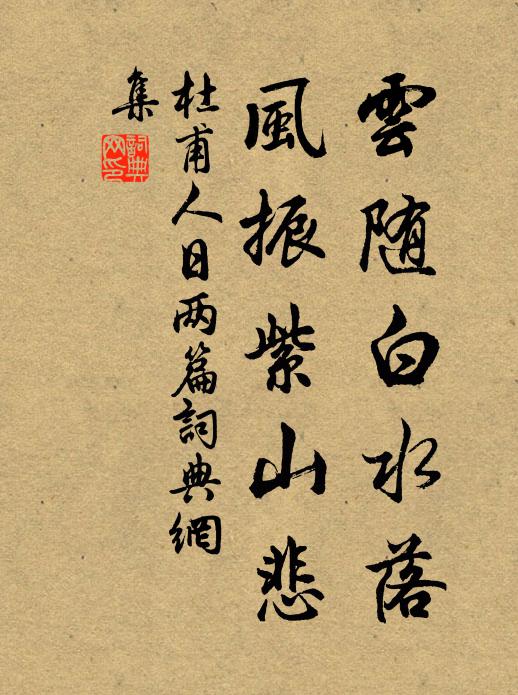 雲随白水落
風振紫山悲
杜甫人日两篇詞典網
集
詞典
网印